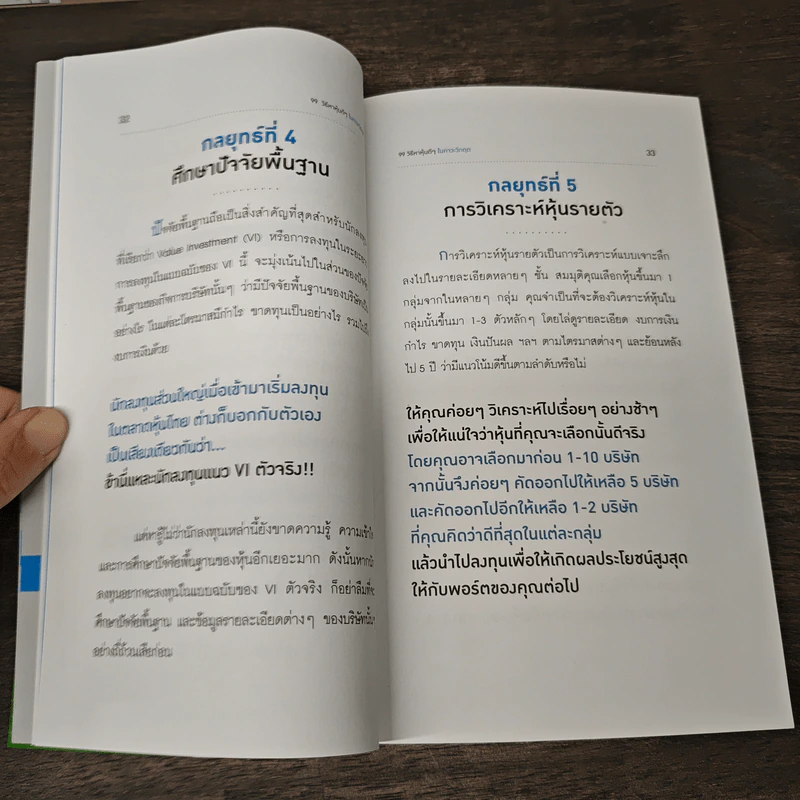 32
99 วิธีหาหุ้นดีๆ ในภาวะวิกฤต
กลยุทธ์ที่ 4
ศึกษาปัจจัยพื้นฐาน
ปัจจัยพื้นฐานถือเป็นสิ่งสำคัญที่สุดสำหรับนักลงทุน
ที่เรียกว่า Value Investment (VI) หรือการลงทุนในระยะยาว
การลงทุนในแบบฉบับของ VI นี้ จะมุ่งเน้นไปในส่วนของปัจจัย
พื้นฐานของกิจการบริษัทนั้นๆ ว่ามีปัจจัยพื้นฐานของบริษัทเป็น
อย่างไร ในแต่ละไตรมาสมีกำไร ขาดทุนเป็นอย่างไร รวมไปถึง
งบการเงินด้วย
นักลงทุนส่วนใหญ่เมื่อเข้ามาเริ่มลงทุน
ในตลาดหุ้นไทย ต่างก็บอกกับตัวเอง
เป็นเสียงเดียวกันว่า...
ข้านี่แหละนักลงทุนแนว VI ตัวจริง!!
แต่หารู้ไม่ว่านักลงทุนเหล่านี้ยังขาดความรู้ ความเข้าใจ
และการศึกษาปัจจัยพื้นฐานของหุ้นอีกเยอะมาก ดังนั้นหากนัก
ลงทุนอยากจะลงทุนในแบบฉบับของ VI ตัวจริง ก็อย่าลืมที่จะ
ศึกษาปัจจัยพื้นฐาน และข้อมูลรายละเอียดต่างๆ ของบริษัทนั้นๆ
อย่างถี่ถ้วนเสียก่อน
99 วิธีหาหุ้นดีๆ ในภาวะวิกฤต
33
กลยุทธ์ที่ 5
การวิเคราะห์หุ้นรายตัว
การวิเคราะห์หุ้นรายตัวเป็นการวิเคราะห์แบบเจาะลึก
ลงไปในรายละเอียดหลายๆ ชั้น สมมุติคุณเลือกหุ้นขึ้นมา 1
กลุ่มจากในหลายๆ กลุ่ม คุณจำเป็นที่จะต้องวิเคราะห์หุ้นใน
กลุ่มนั้นขึ้นมา 1-3 ตัวหลักๆ โดยไล่ดูรายละเอียด งบการเงิน
กำไร ขาดทุน เงินปันผล ฯลฯ ตามไตรมาสต่างๆ และย้อนหลัง
ไป 5 ปี ว่ามีแนวโน้มดีขึ้นตามลำดับหรือไม่
ให้คุณค่อยๆ วิเคราะห์ไปเรื่อยๆ อย่างช้าๆ
เพื่อให้แน่ใจว่าหุ้นที่คุณจะเลือกนั้นดีจริง
โดยคุณอาจเลือกมาก่อน 1-10 บริษัท
จากนั้นจึงค่อยๆ คัดออกไปให้เหลือ 5 บริษัท
และคัดออกไปอีกให้เหลือ 1-2 บริษัท
ที่คุณคิดว่าดีที่สุดในแต่ละกลุ่ม
แล้วนำไปลงทุนเพื่อให้เกิดผลประโยชน์สูงสุด
ให้กับพอร์ตของคุณต่อไป